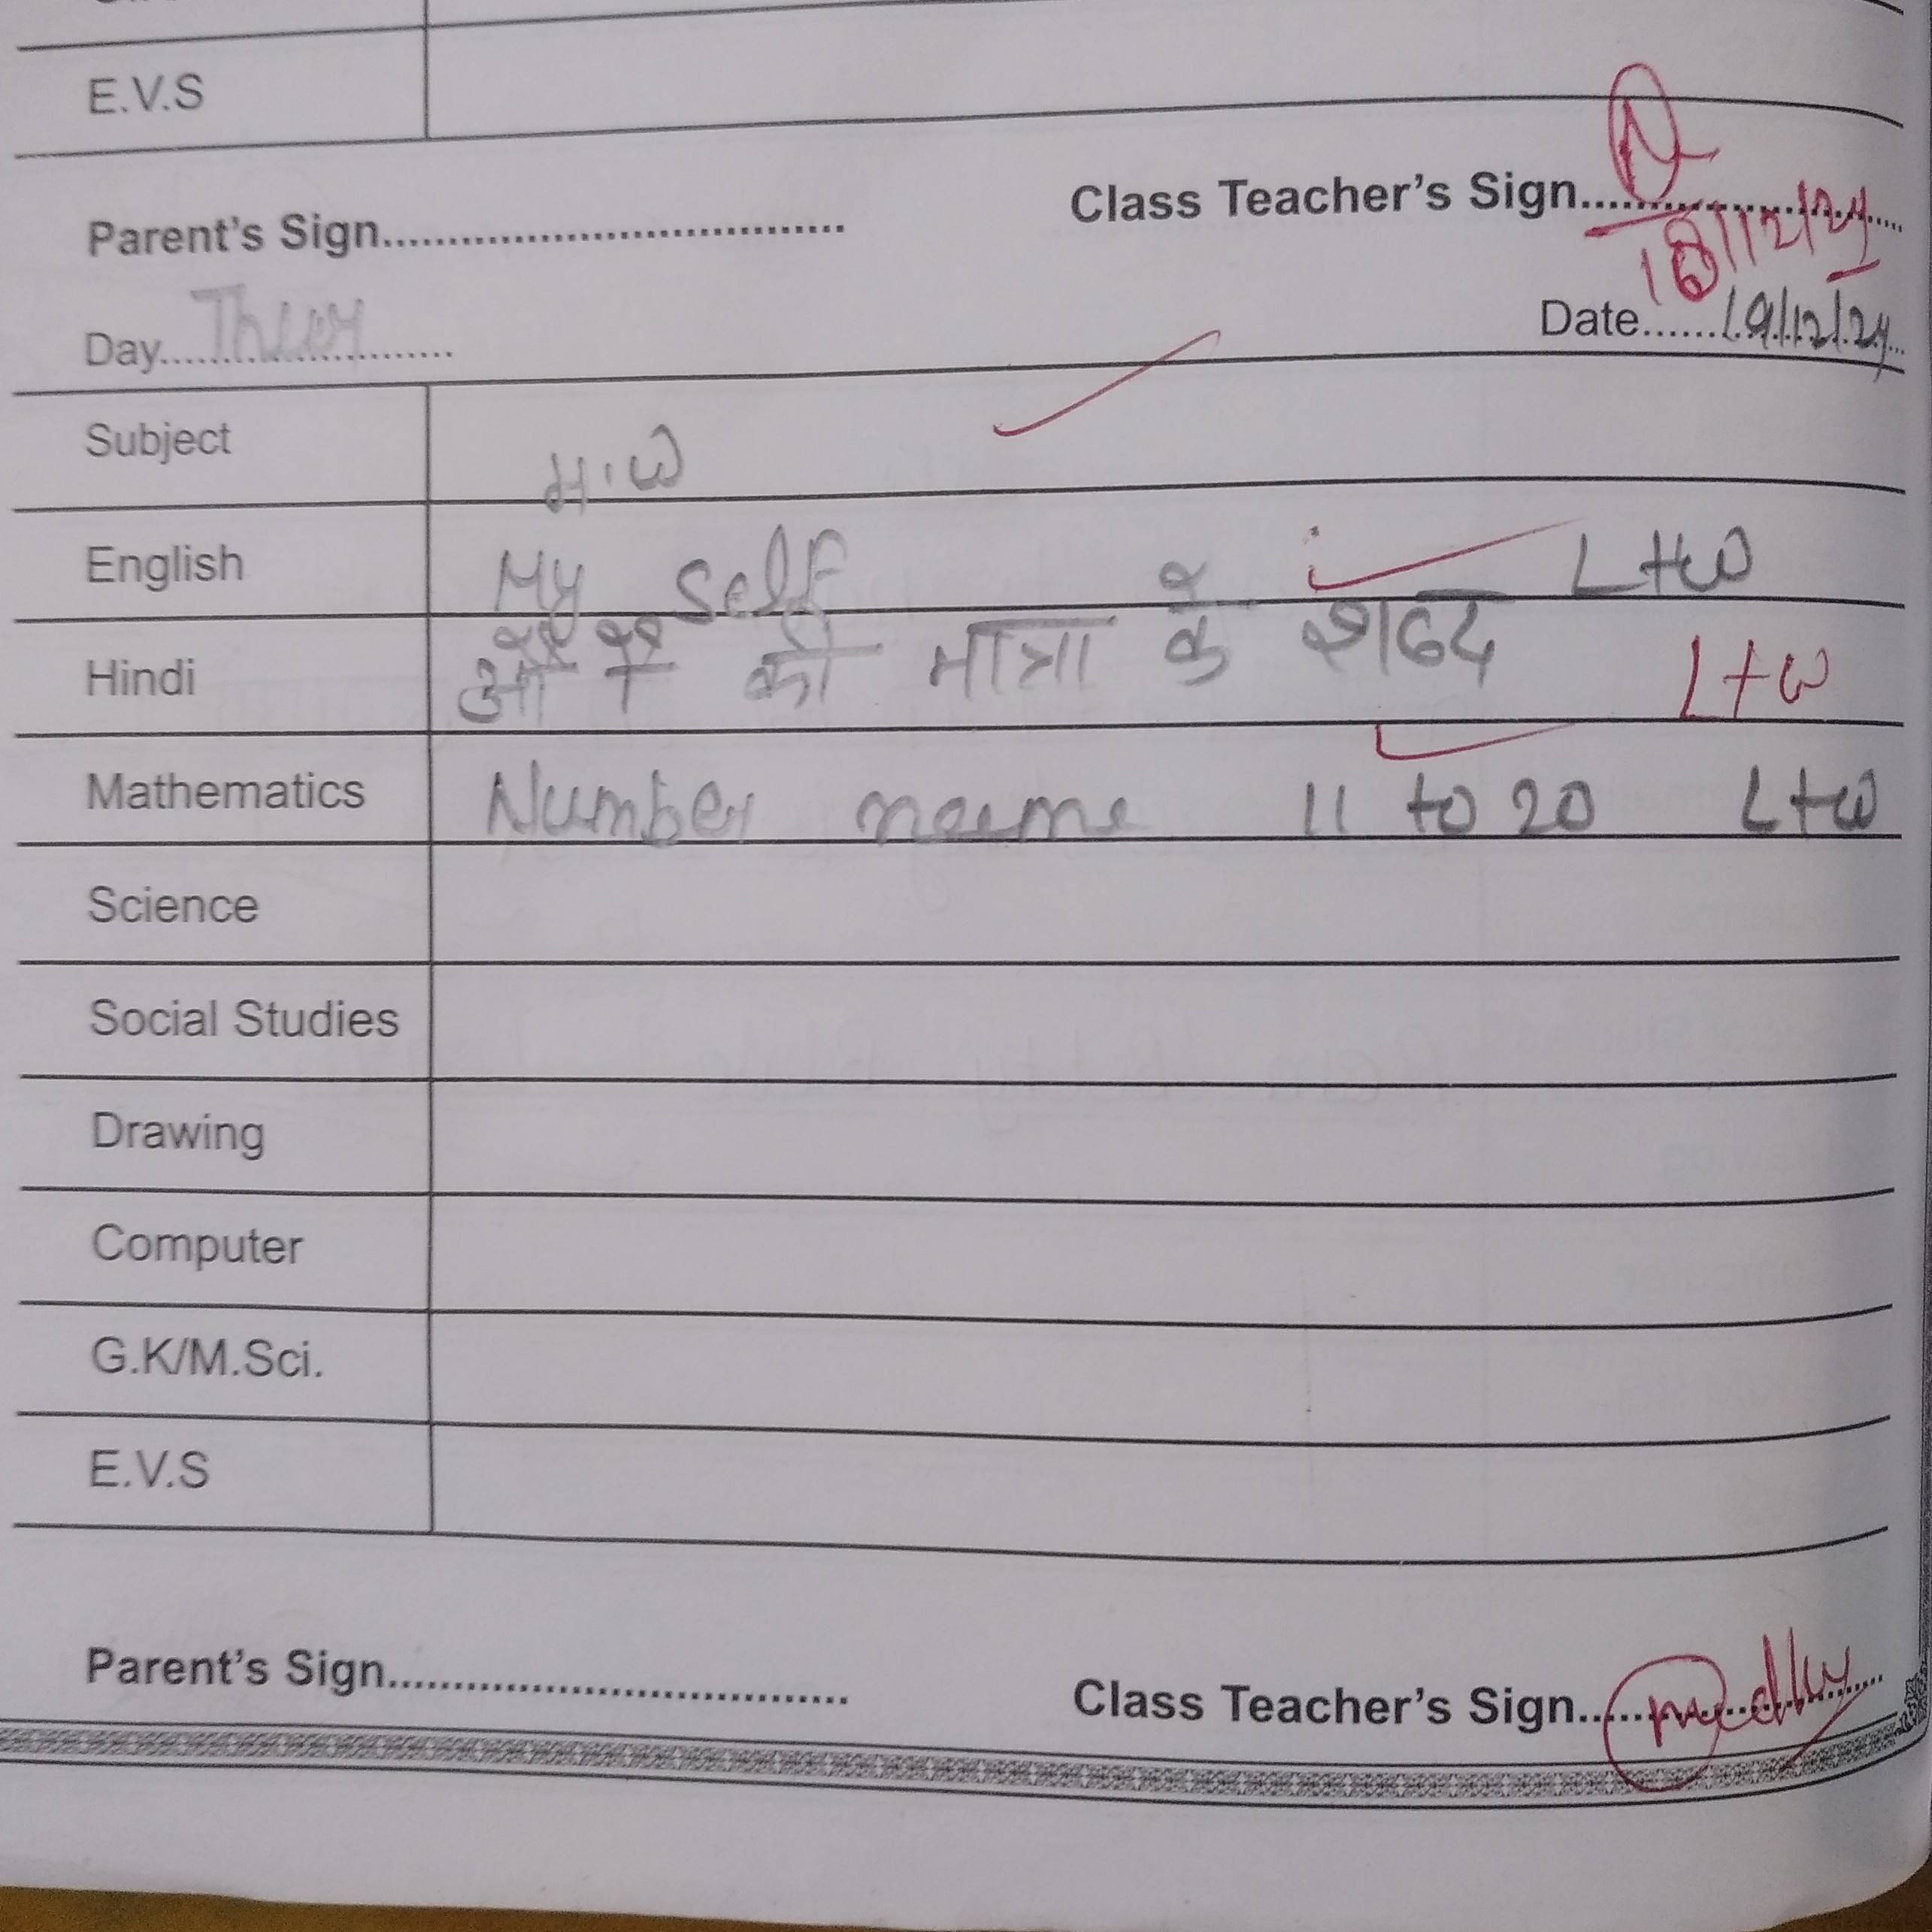 E.V.S
Parent's Sign
Class Teacher's Sign
18/12/24
Day Thur
Date 19/12/24
Subject H.W
English My self L+W
Hindi औ ौ की मात्रा के शब्द L+W
Mathematics Number name 11 to 20 L+W
Science
Social Studies
Drawing
Computer
G.K/M.Sci.
E.V.S
Parent's Sign
Class Teacher's Sign